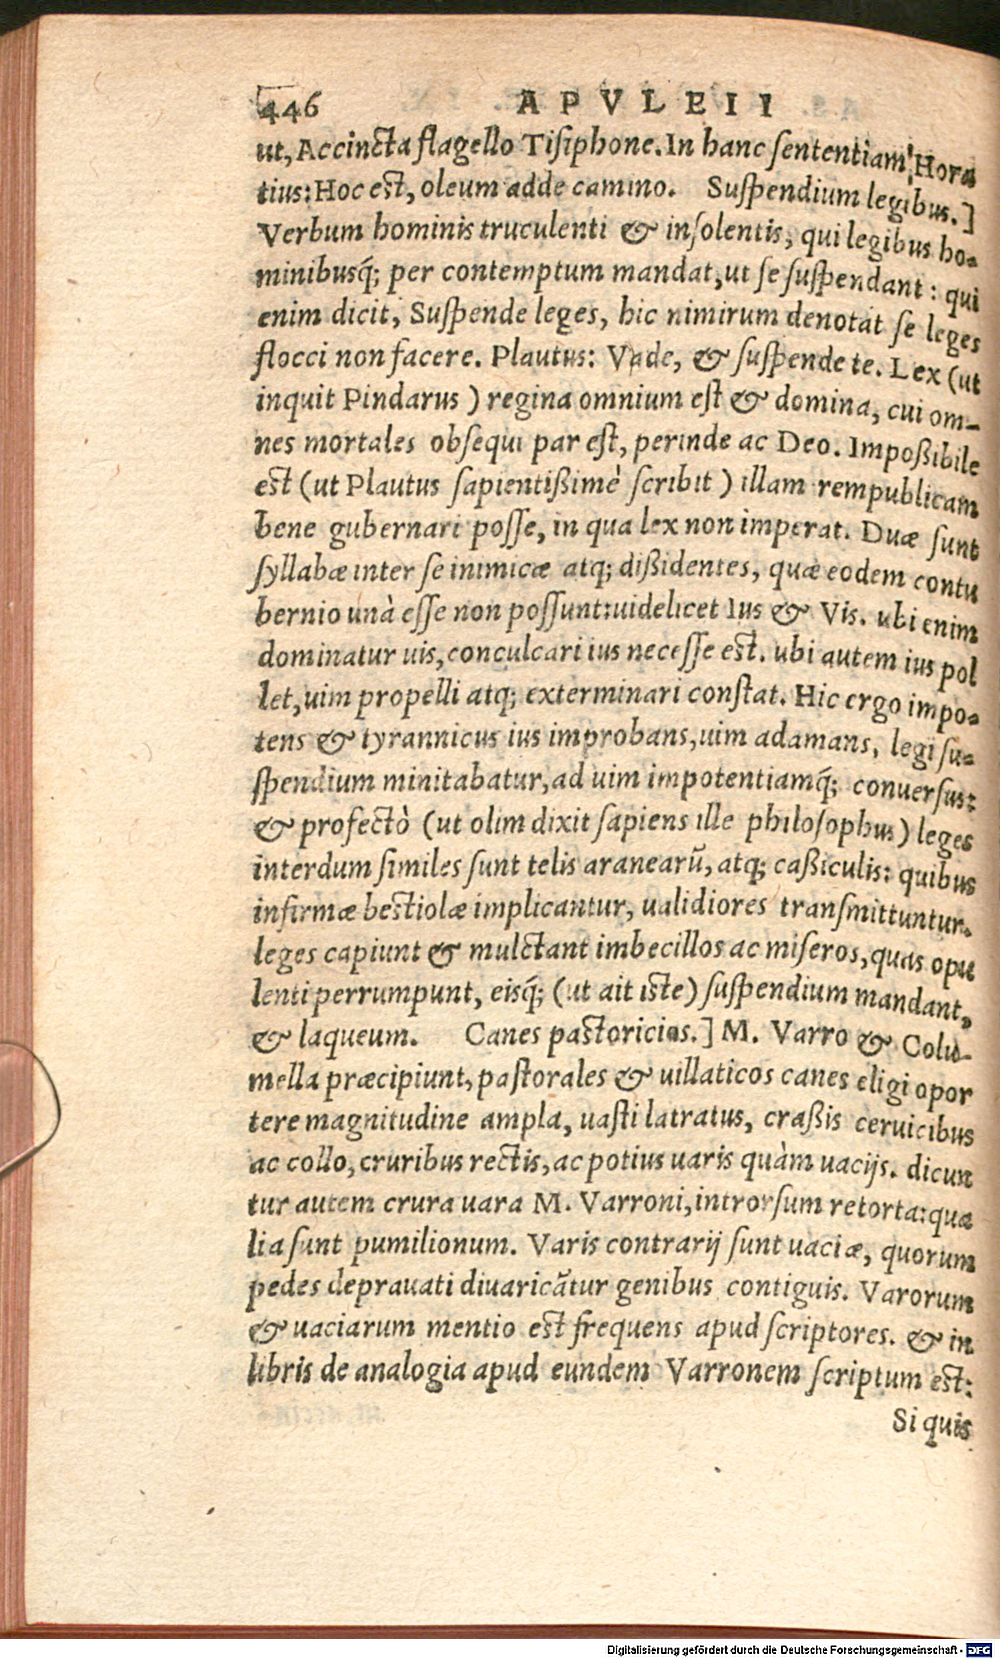 446 APVLEII
ut, Accincta flagello Tisiphone. In hanc sententiam Hora
tius: Hoc est, oleum adde camino. Suspendium legibus.]
Verbum hominis truculenti & insolentis, qui legibus ho-
minibusq́; per contemptum mandat, ut se suspendant: qui
enim dicit, Suspende leges, hic nimirum denotat se leges
flocci non facere. Plautus: Vade, & suspende te. Lex (ut
inquit Pindarus) regina omnium est & domina, cui om-
nes mortales obsequi par est, perinde ac Deo. Impoßibile
est (ut Plautus sapientißimè scribit) illam rempublicam
bene gubernari posse, in qua lex non imperat. Duæ sunt
syllabæ inter se inimicæ atq; dißidentes, quæ eodem contu
bernio unà esse non possunt: uidelicet Ius & Vis. ubi enim
dominatur uis, conculcari ius necesse est. ubi autem ius pol
let, uim propelli atq; exterminari constat. Hic ergo impo-
tens & tyrannicus ius improbans, uim adamans, legi su-
spendium minitabatur, ad uim impotentiamq́; conuersus:
& profectò (ut olim dixit sapiens ille philosophus) leges
interdum similes sunt telis aranearũ, atq; caßiculis: quibus
infirmæ bestiolæ implicantur, ualidiores transmittuntur.
leges capiunt & mulctant imbecillos ac miseros, quas opu
lenti perrumpunt, eisq́; (ut ait iste) suspendium mandant,
& laqueum. Canes pastoricios.] M. Varro & Colu-
mella præcipiunt, pastorales & uillaticos canes eligi opor
tere magnitudine ampla, uasti latratus, craßis ceruicibus
ac collo, cruribus rectis, ac potius uaris quàm uacijs. dicun
tur autem crura uara M. Varroni, introrsum retorta: qua
lia sunt pumilionum. Varis contrarij sunt uaciæ, quorum
pedes deprauati diuaricātur genibus contiguis. Varorum
& uaciarum mentio est frequens apud scriptores. & in
libris de analogia apud eundem Varronem scriptum est:
Si quis
Digitalisierung gefördert durch die Deutsche Forschungsgemeinschaft - DFG